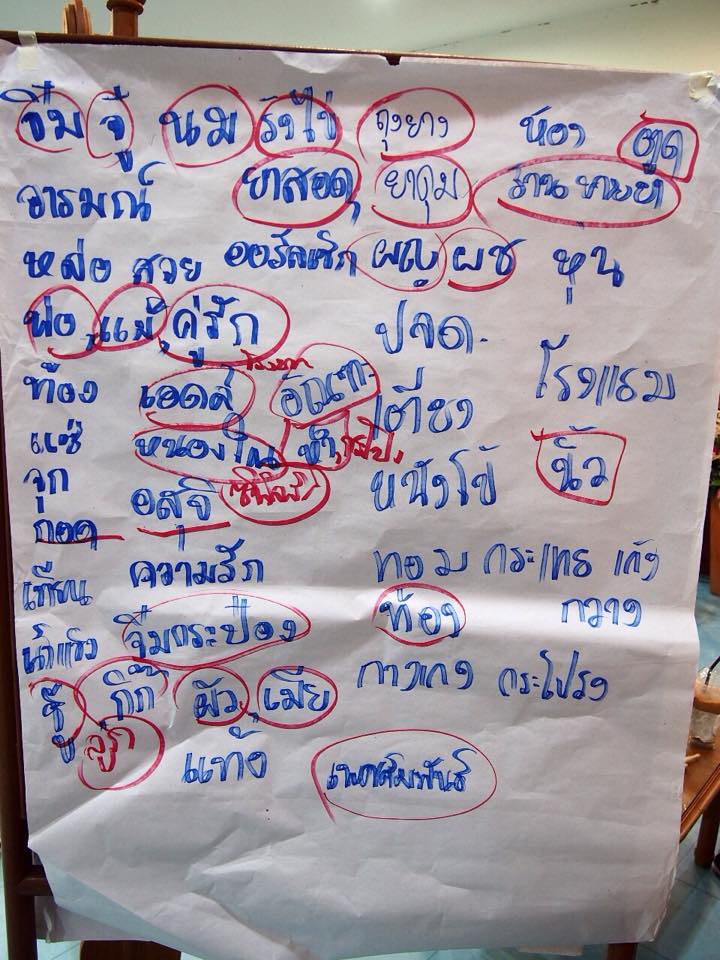 จิ๋ม จู๋ นม รังไข่ ถุงยาง ห้อง ตูด
อารมณ์ ยาสอด, ยาคุม ร้านขายยา
หล่อ สวย ออรัลเซ็ก ผญ ผช หุ่น
พ่อ, แม่, คู่รัก ปจด.
ท้อง เอดส์ โรงแรม
เตียง
แซ่ หนองใน นิ้ว
จุก อสุจิ หนังโป๊
กอด
เทียน ความรัก ทอม กระเทย เก้ง
น้ำแข็ง จิ๋มกระป๋อง ท้อง กวาง
ชู้, กิ๊ก ผัว, เมีย กางเกง กระโปรง
ลูก แท้ง เพศสัมพันธ์